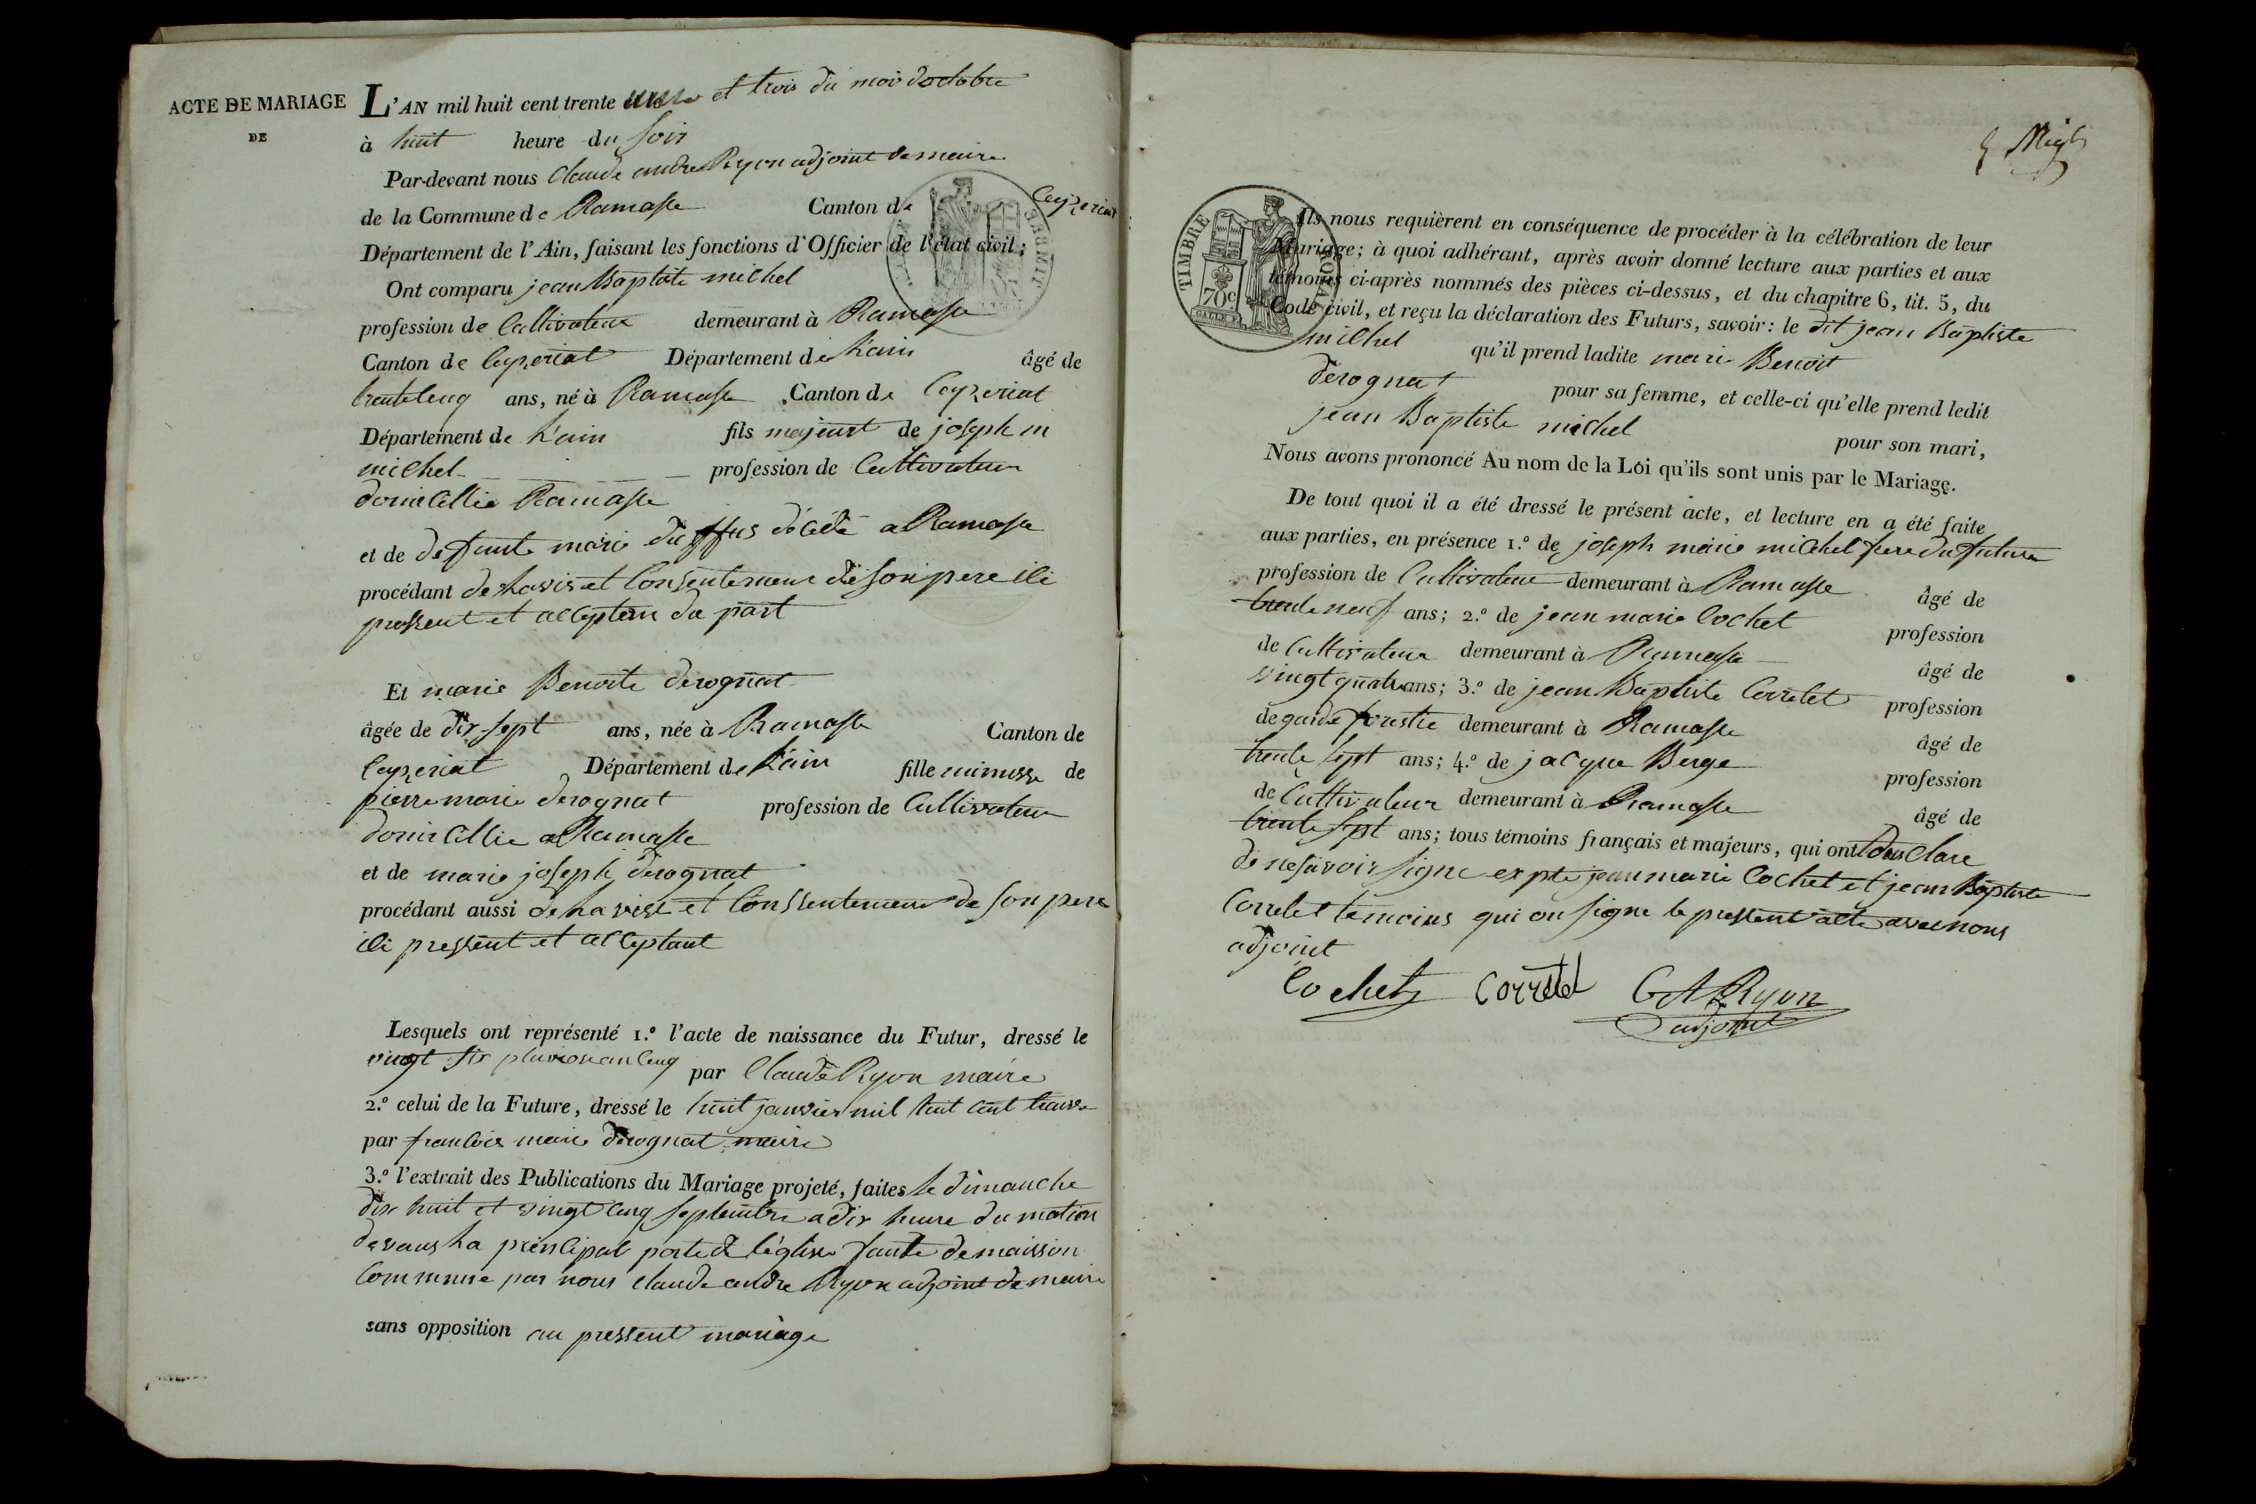 ACTE DE MARIAGE
DE
L'AN mil huit cent trente et trois du mois doctobre
à huit heure du soir
Par-devant nous Claude andre Ryon adjoint de maire
de la Commune de Ramasse Canton de Ceyzeriat
Département de l'Ain, faisant les fonctions d'Officier de l'état civil;
Ont comparu jean Baptiste michel
profession de Cultivateur demeurant à Ramasse
Canton de Ceyzeriat Département de Lain âgé de
trente cenq ans, né à Ramasse Canton de Ceyzeriat
Département de Lain fils majeur de joseph m
michel profession de Cultivateur
domicillie Ramasse
et de defunte marie décédé a Ramasse
procédant de Lavis et Consentement de son pere ici
pressent et acceptan da part
Et marie Benoite derognat
âgée de dix sept ans, née à Ramasse Canton de
Ceyzeriat Département de Lain fille minusse de
pierre marie derognat profession de Cultivateur
domicillie a Ramasse
et de marie joseph derognat
procédant aussi de Lavise et Conssentement de son pere
ici pressent et acceptant
Lesquels ont représenté 1.º l'acte de naissance du Futur, dressé le
vingt six pluviose an cenq par Claude Ryon maire
2.º celui de la Future, dressé le huit janvier mil huit cent
par francois marie derognat maire
3.º l'extrait des Publications du Mariage projeté, faites le dimanche
dix huit et vingt cenq septembre a dix heure du matien
devans La prencipal porte de léglise faute de maission
Commune par nous claude andre Ryon adjoint de maire
sans opposition au pressent mariage
TIMBRE ROYAL
70c
Ils nous requièrent en conséquence de procéder à la célébration de leur
Mariage; à quoi adhérant, après avoir donné lecture aux parties et aux
témoins ci-après nommés des pièces ci-dessus, et du chapitre 6, tit. 5, du
Code civil, et reçu la déclaration des Futurs, savoir: le dit jean Baptiste
michel qu'il prend ladite marie Benoit
derognat pour sa femme, et celle-ci qu'elle prend ledit
jean Baptiste michel pour son mari,
Nous avons prononcé Au nom de la Loi qu'ils sont unis par le Mariage.
De tout quoi il a été dressé le présent acte, et lecture en a été faite
aux parties, en présence 1.º de joseph marie michel frere du future
profession de Cultivateur demeurant à Ramasse âgé de
trente neuf ans; 2.º de jean marie Cochet profession
de Cultivateur demeurant à Ramasse âgé de
vingt quatre ans; 3.º de jean Baptiste Corretet profession
de garde forestie demeurant à Ramasse âgé de
trente sept ans; 4.º de jacque Berge profession
de Cultivateur demeurant à Ramasse âgé de
trente sept ans; tous témoins français et majeurs, qui ont Clare
de ne savoir signe expte jean marie Cochet et jean Baptiste
Corretet temoins qui on signe le pressent acte avec nous
adjoint
Cochet Corretet C A Ryon
adjoint